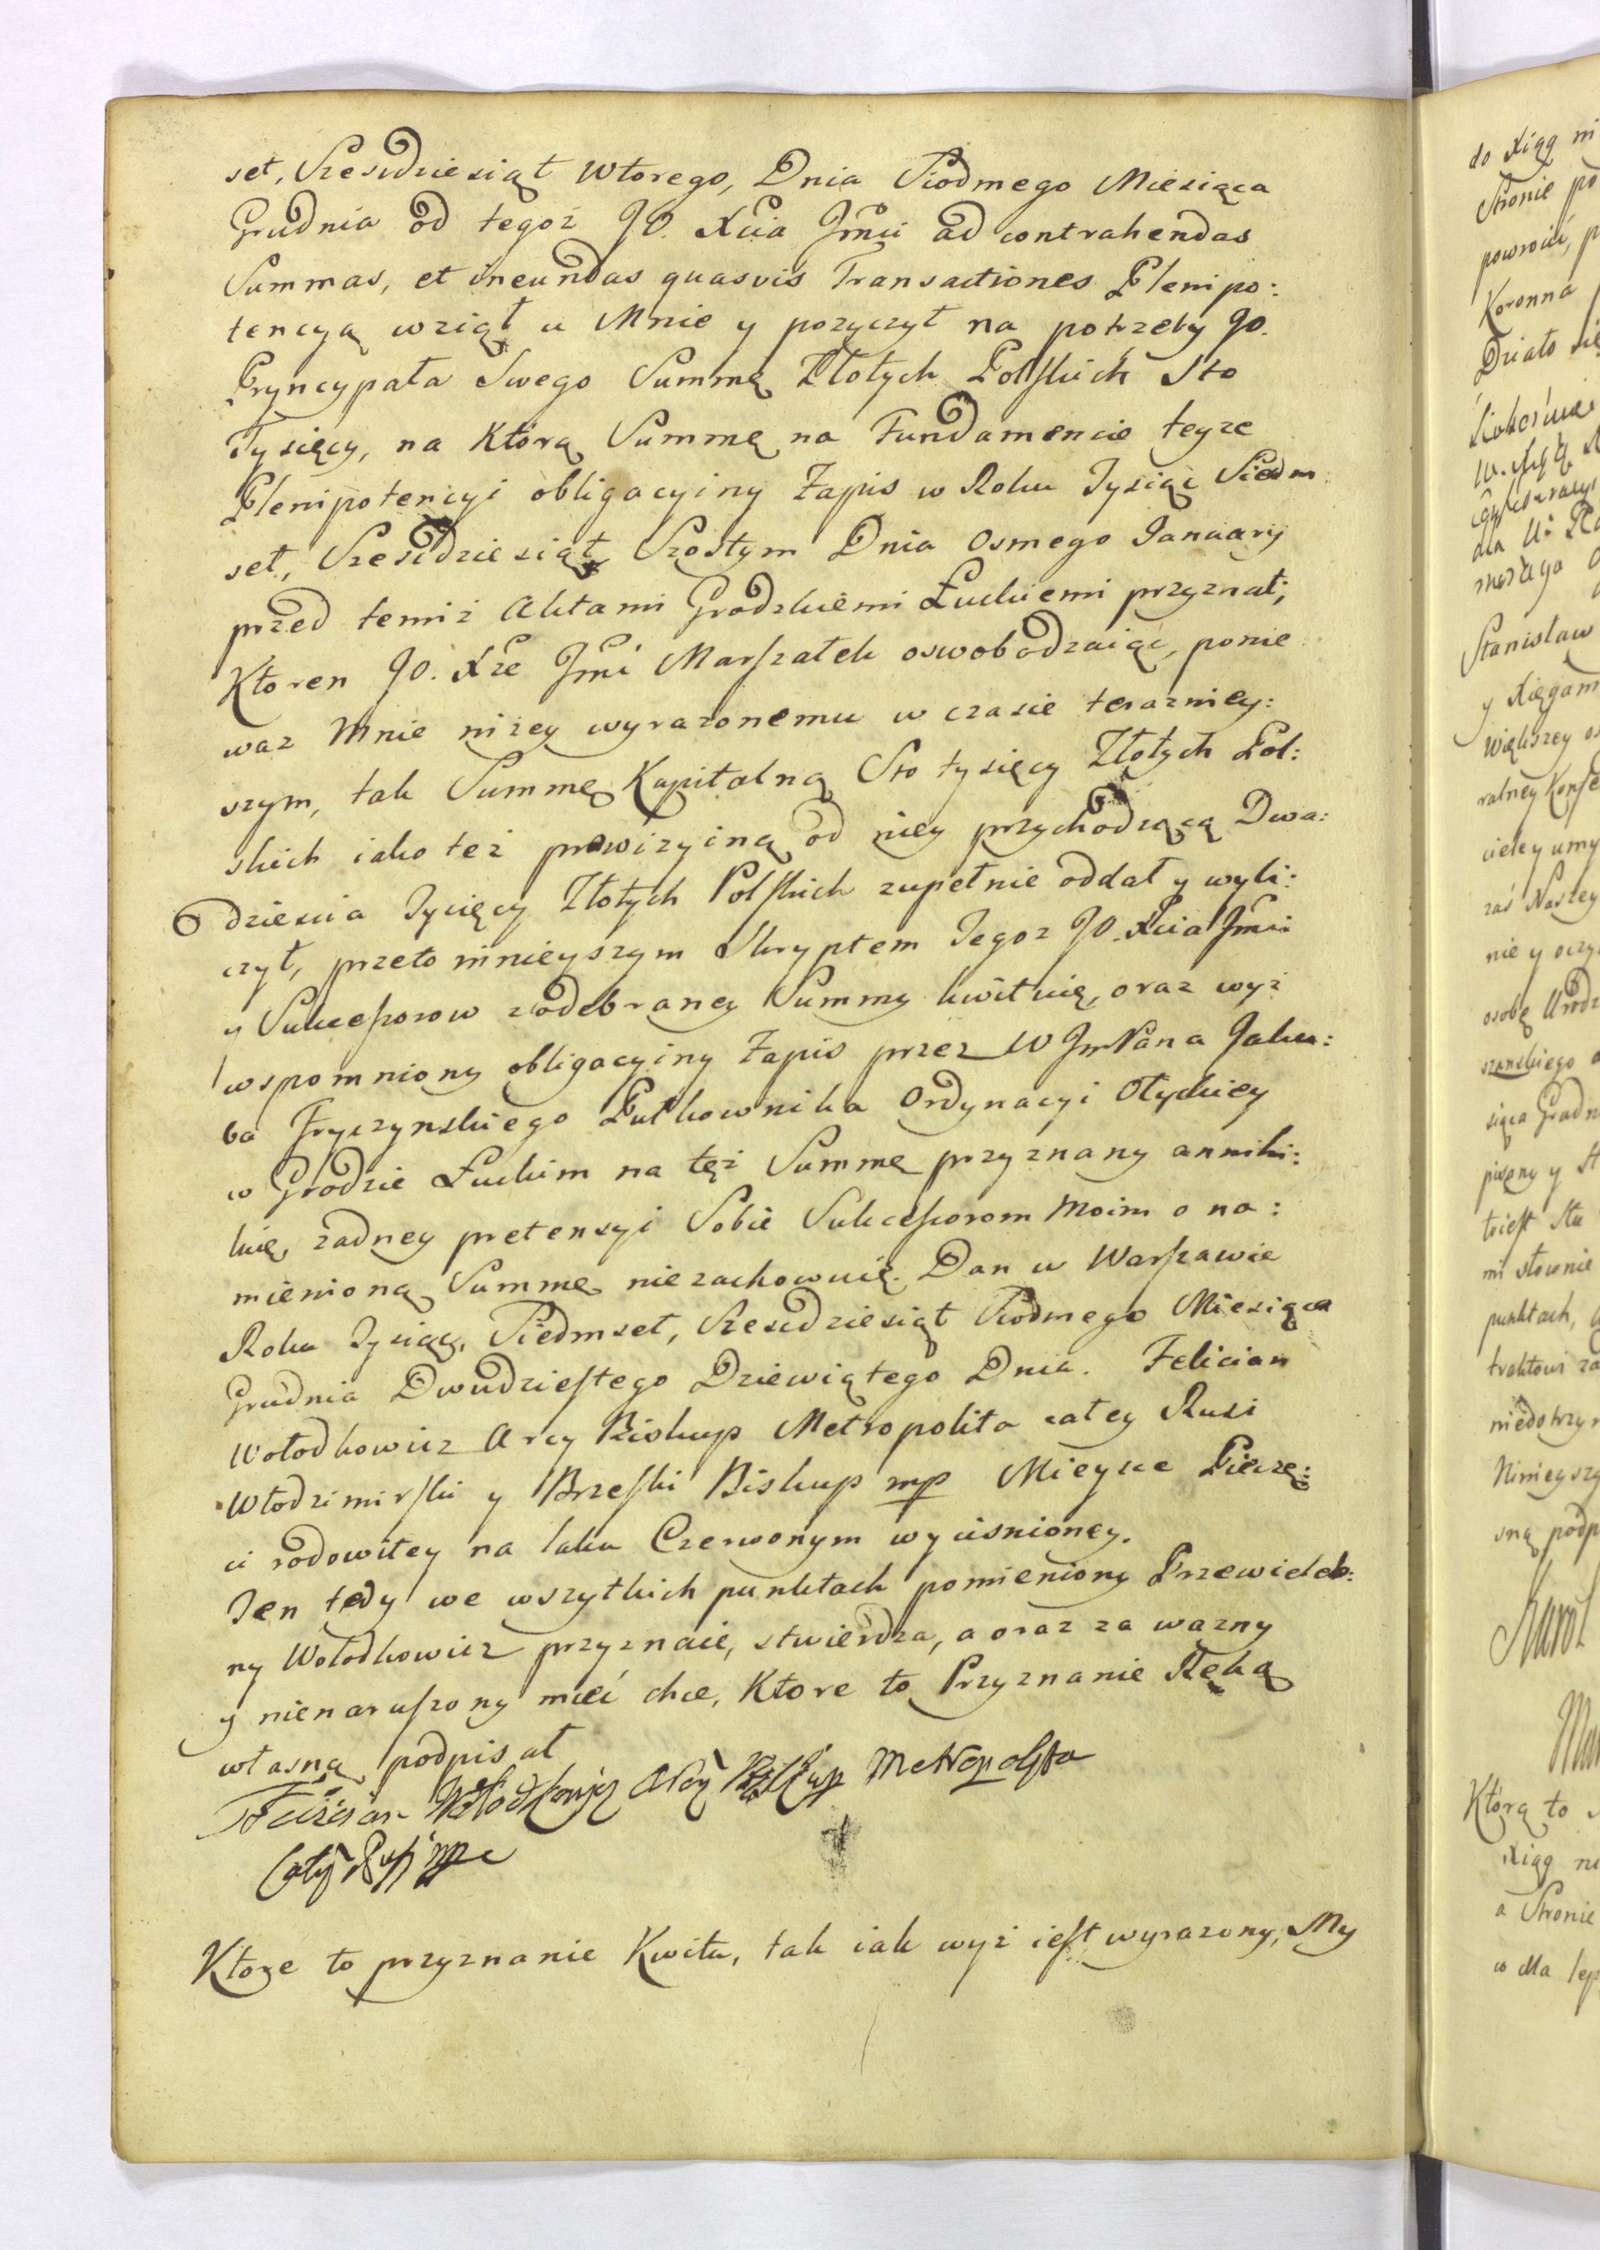 set, Szescdziesiąt Wtorego, Dnia Siodmego Miesiąca
Grudnia od tegoż JO. Xcia Jmci ad contrahendas
Summas, et ineundas quasvis Transactiones Plenipo:
tencyą wziął u Mnie y pozyczył na potrzeby JO.
Pryncypała Swego Summę Złotych Polskich Sto
Tysięcy, na Którą Summę na Fundamencie teyze
Plenipotencyi obligacyiny Zapis w Roku Tysiąc Siedm
set, Szescdziesiąt Szostym Dnia Osmego January
przed temiż Aktami Grodzkiemi Łuckiemi przyznał,
Ktoren JO. Xże Jmć Marszałek oswobodzaiąc, ponie
waz Mnie niżey wyrazonemu w czasie terazniey:
szym, tak Summę Kapitalną Sto tysięcy Złotych Pol:
skich iako też prowizyiną od niey przychodzącą Dwa:
dziescia Tysięcy Złotych Polskich zupełnie oddał y wyli:
czył, przeto innieyszym Skryptem Tegoz JO. Xcia Jmci
y Sukcessorow z odebraney Summy kwituię, oraz wyż
wspomniony obligacyiny Zapis przez W JmPana Jaku:
ba Fryczynskiego Pułkownika Ordynacyi Ołyckiey
w Grodzie Łuckim na tęż Summę przyznany annihi:
luię, żadney pretensyi Sobie Sukcessorom Moim o na:
mienioną Summę niezachowuię. Dan w Warszawie
Roku Tysiąc, Siedmset, Szescdziesiąt Siodmego Miesiąca
Grudnia Dwudziestego Dziewiątego Dnia. Felician
Wołodkowicz Arcy Biskup Metropolita całey Rusi
Włodzimirski y Brzeski Biskup mp Mieysce Pieczę:
ci rodowitey na laku Czerwonym wyciśnioney.
Ten tedy we wszytkich punktach pomieniony Przewieleb:
ny Wołodkowicz przyznaie, stwierdza, a oraz za wazny
y nienaruszony mieć chce, Ktore to Przyznanie Ręką
własną podpisał
Felician Wołodkowicz Arcy Biskup Metropolita
Cały Rusi mp
Ktore to przyznanie Kwitu, tak iak wyż iest wyrazony, My
do Xiąg
Stronie
powroić,
Koronna
Działo się
Stanisław
y Xięgam
większey
ralney
cieley
zaś Naszey
nie y
osobę
szanskiego
siąca Grudn
pisany y
mi słownie
punktach,
traktowi
niedotrzy
Ninieyszy
sną podp
Karol
Którą to
Xiąg
a Stronie
w dla lep